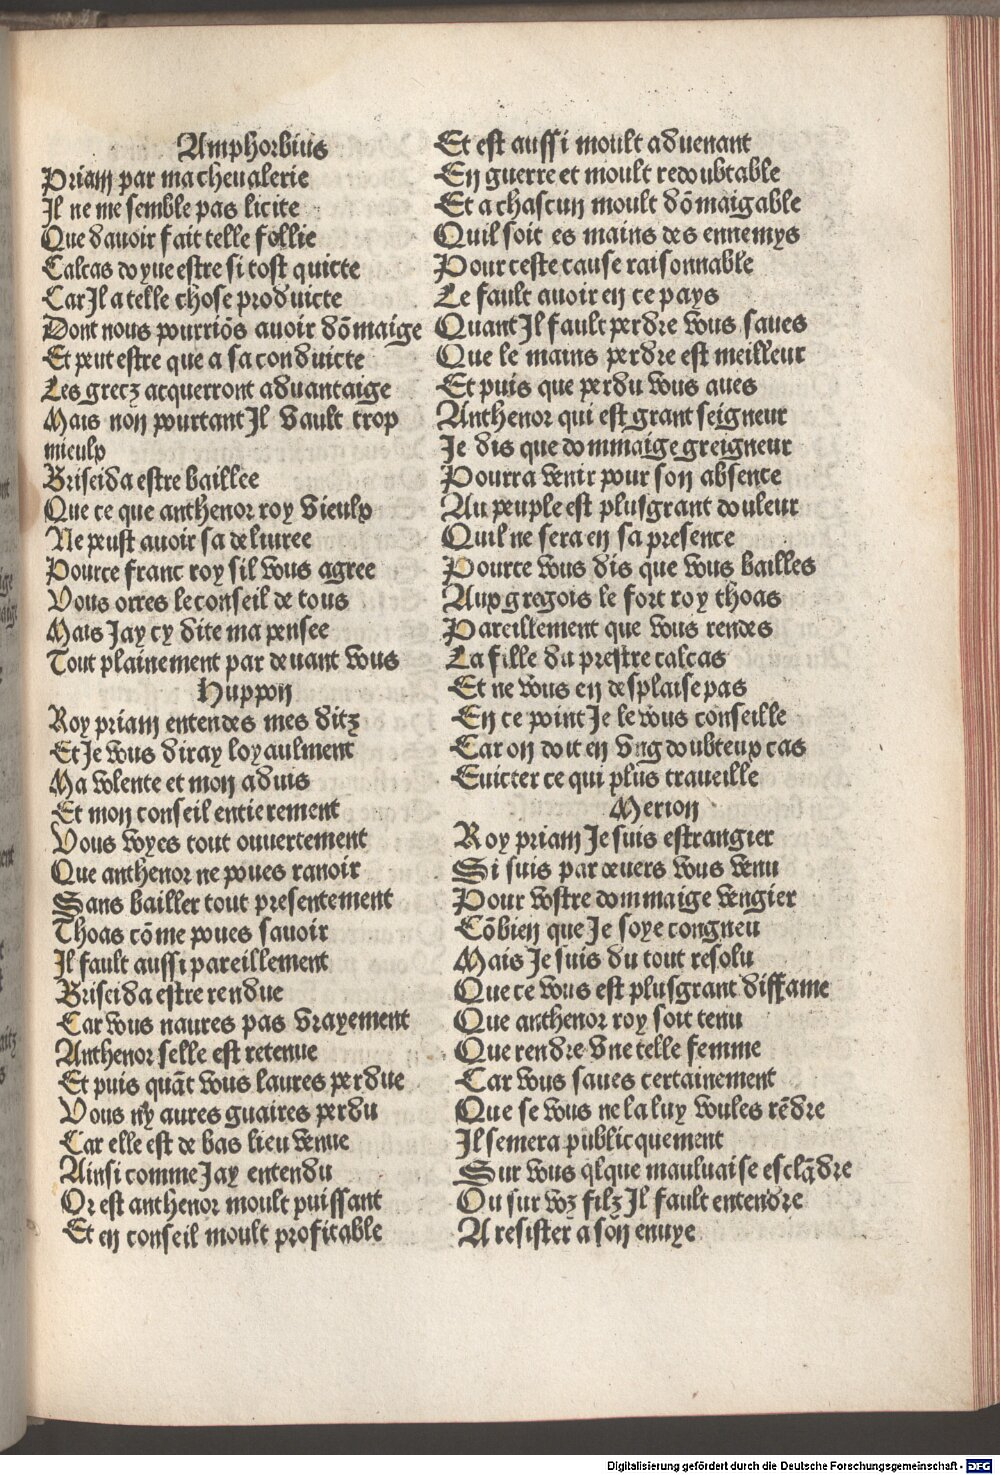 Amphorbius
Priam par ma cheualerie
Il ne me semble pas licite
Que dauoir fait telle follie
Calcas doyue estre si tost quicte
Car Il a telle chose produicte
Dont nous pourriõs auoir dõmaige
Et peut estre que a sa conduicte
Les grecz acquerront aduantaige
Mais non pourtant Il vault trop
mieulx
Briseida estre baillee
Que ce que anthenor roy vieulx
Ne peust auoir sa deliuree
Pource franc roy sil vous agree
Vous orres le conseil de tous
Mais Jay cy dite ma pensee
Tout plainement par deuant vous
Huppon
Roy priam entendes mes ditz
Et Je vous diray loyaulment
Ma volente et mon aduis
Et mon conseil entierement
Vous voyes tout ouuertement
Que anthenor ne poues rauoir
Sans bailler tout presentement
Thoas cõme poues sauoir
Il fault aussi pareillement
Briseida estre rendue
Car vous naures pas vrayement
Anthenor selle est retenue
Et puis quãt vous laures perdue
Vous ny aures guaires perdu
Car elle est de bas lieu venue
Ainsi comme Jay entendu
Or est anthenor moult puissant
Et en conseil moult profitable
Et est aussi moult aduenant
En guerre et moult redoubtable
Et a chascun moult dõmaigable
Quil soit es mains des ennemys
Pour ceste cause raisonnable
Le fault auoir en ce pays
Quant Il fault perdre vous saues
Que le mains perdre est meilleur
Et puis que perdu vous aues
Anthenor qui est grant seigneur
Je dis que dommaige greigneur
Pourra venir pour son absence
Au peuple est plusgrant douleur
Quil ne sera en sa presence
Pource vous dis que vous bailles
Aux gregois le fort roy thoas
Pareillement que vous rendes
La fille du prestre calcas
Et ne vous en desplaise pas
En ce point Je le vous conseille
Car on doit en vng doubteux cas
Euicter ce qui plus traueille
Merion
Roy priam Je suis estrangier
Si suis par deuers vous venu
Pour vostre dommaige vengier
Cõbien que Je soye congneu
Mais Je suis du tout resolu
Que ce vous est plusgrant diffame
Que anthenor roy soit tenu
Que rendre vne telle femme
Car vous saues certainement
Que se vous ne la luy voules rẽdre
Il semera publicquement
Sur vous qlque mauluaise esclãdre
Ou sur voz filz Il fault entendre
A resister a son enuye
Digitalisierung gefördert durch die Deutsche Forschungsgemeinschaft - DFG